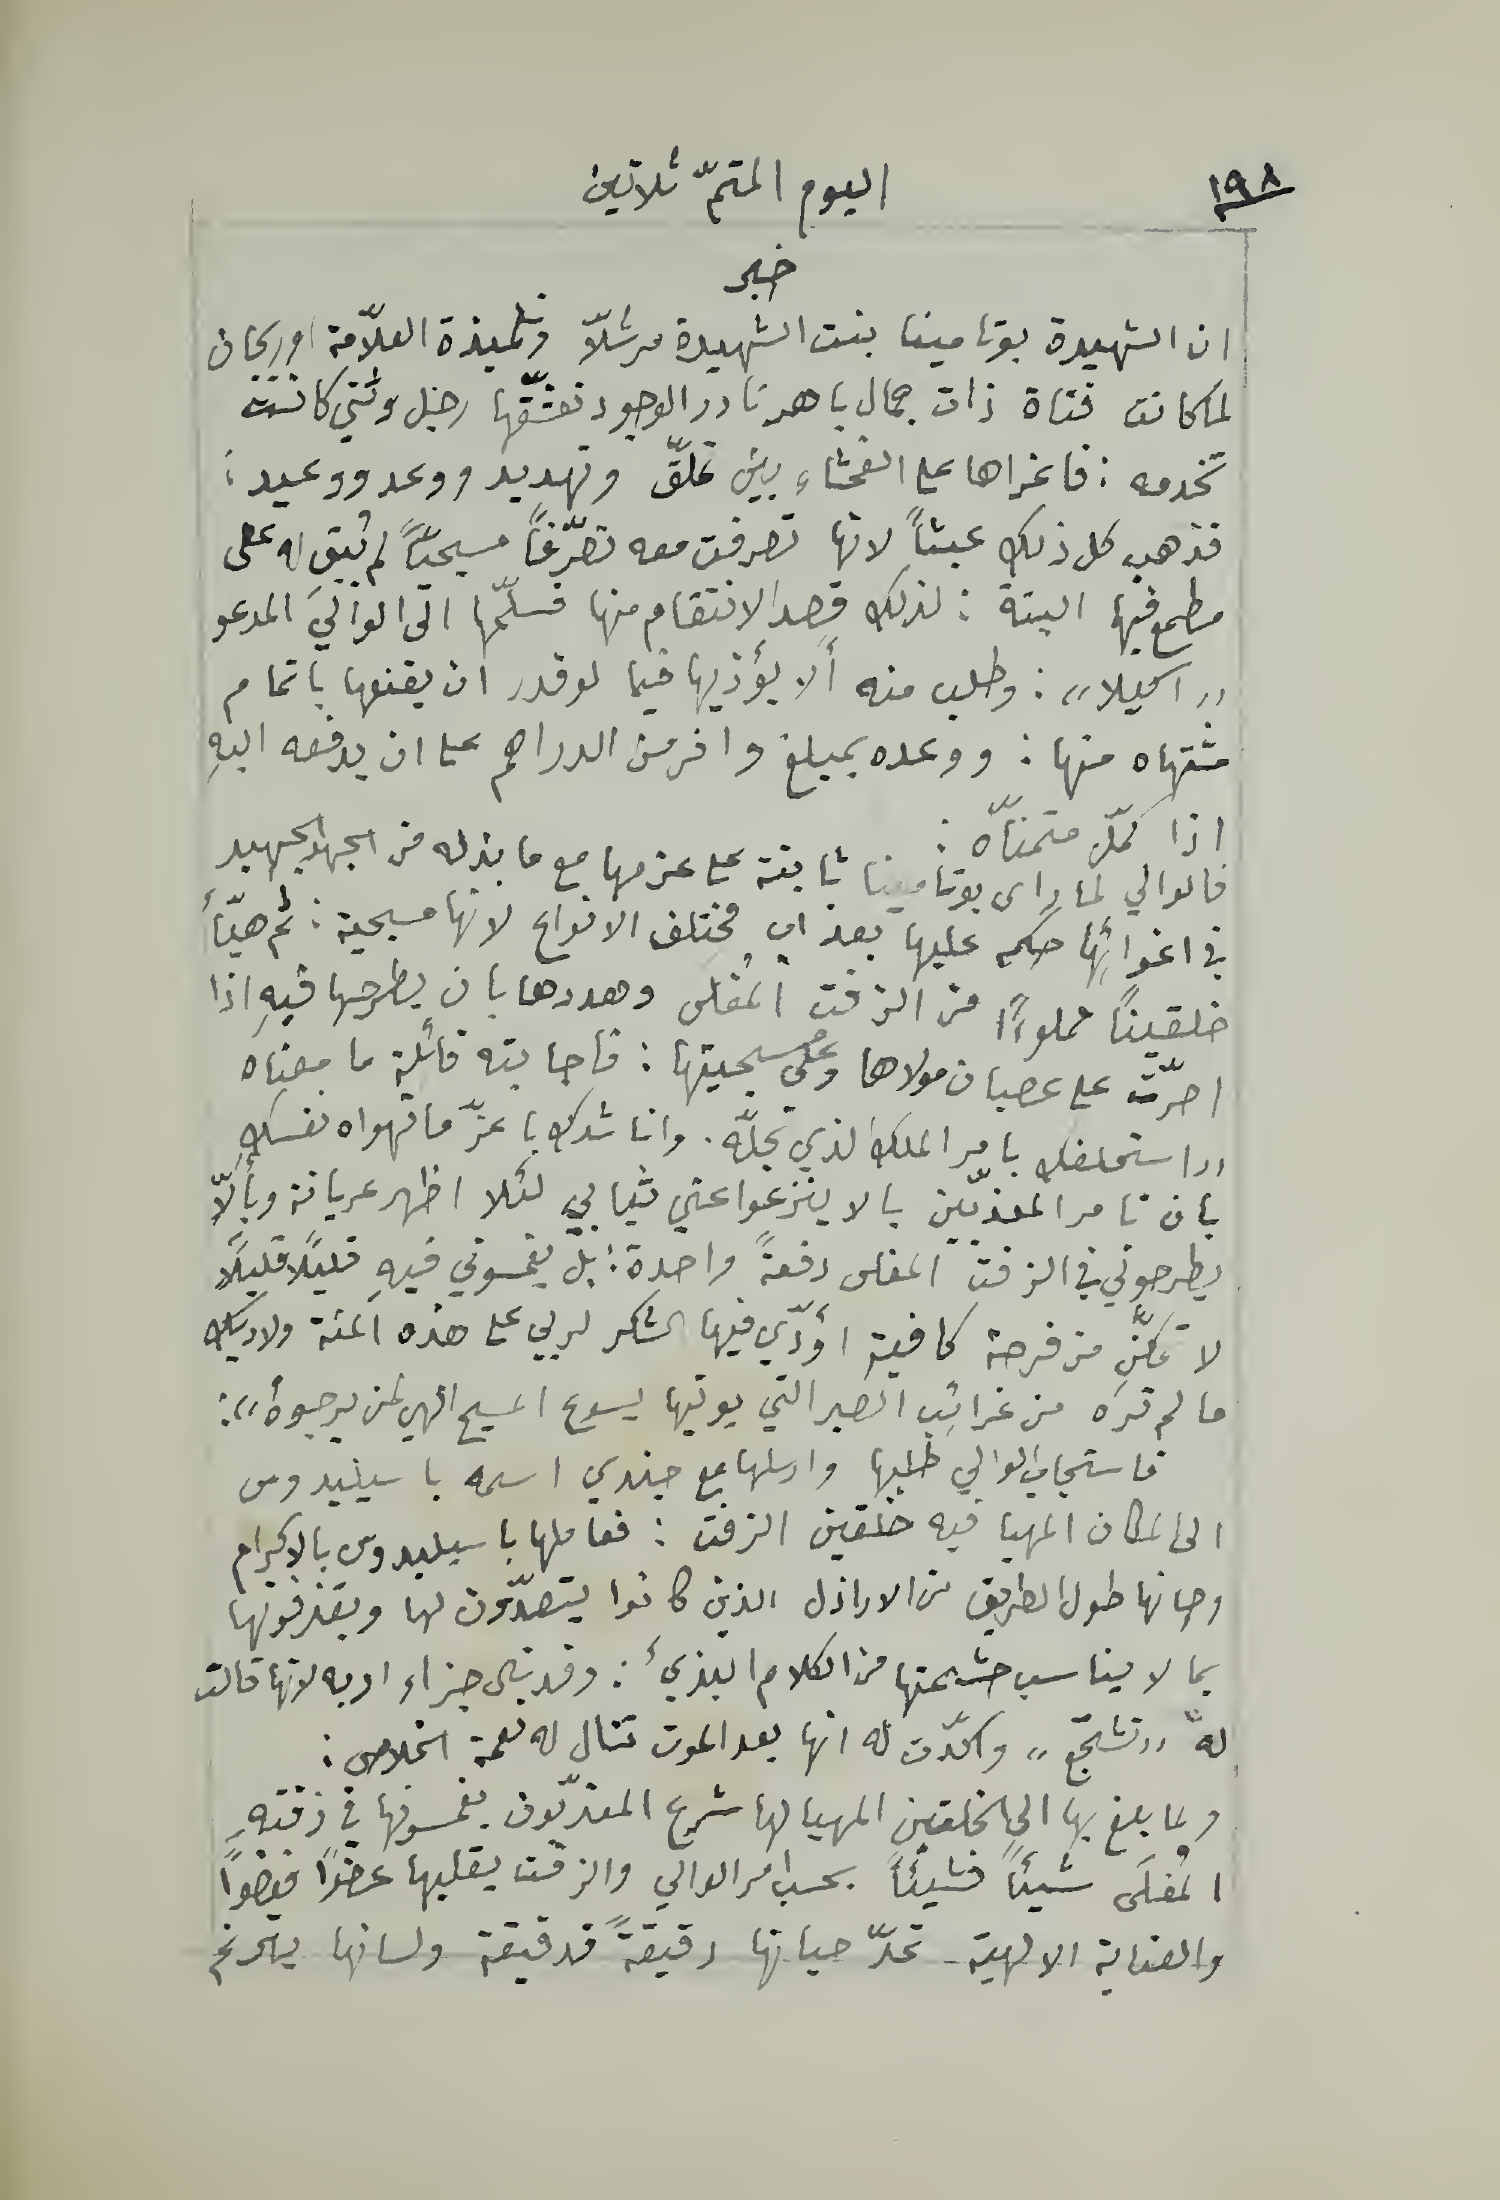 ١٩٨
اليوم المتمّ ثلاثين
خبر
ان الشهيدة بوتامينا بنت الشهيدة مرشلّا وتلميذة العلّامة اوريجان
لما كانت فتاة ذات جمال باهر نادر الوجود تعشّقها رجل وثني كانت
تخدمه : فاغراها على الفحشاء بين تملّق وتهديد ووعد ووعيد :
فذهب كل ذلك عبثاً لانها تصرفت معه تصرّفاً مسيحيّاً لم يُبقِ له على
مطمع فيها البتة : لذلك قصد الانتقام منها فسلّمها الى الوالي المدعو
,, اكيلا ,, : وطلب منه ألا يؤذيها فيما لو قدر ان يقنعها باتمام
مشتهاه منها : ووعده بمبلغ وافر من الدراهم على ان يدفعه اليهِ
اذا كمّل متمنّاه :
فالوالي لما راى بوتامينا ثابتة على عزمها مع ما بذله من الجهد الجهيد
في اغوائها حكم عليها بعذاب مختلف الانواع لانها مسيحية : ثم هيّأ
خلقيناً مملوءًا من الزفت المُغلى وهددها بان يطرحها فيهِ اذا
اصرّت على عصيان مولاها وعلى مسيحيتها : فاجابته قائلة ما معناه
,, استحلفك بامر الملك الذي تجلّه . واناشدك باعزّ ما تهواه نفسك
بان تامر المعذّبين بالا ينزعوا عني ثيابي لئلا اظهر عريانة وبألّا
يطرحوني في الزفت المغلى دفعةً واحدة : بل يغمسوني فيهِ قليلًا قليلًا
لاتمكّن من فرصة كافية اؤدّي فيها الشكر لربي على هذه المنّة ولاريك
ما لم تره من غرائب الصبر التي يوتيها يسوع المسيح الهي لمن يرجوهُ ,, :
فاستجاب الوالي طلبها وارسلها مع جندي اسمه باسيليدوس
الى المكان المهيا فيه خلقين الزفت : فعاملها باسيليدوس بالاكرام
وصانها طول الطريق من الاراذل الذين كانوا يتصدّون لها ويقذفونها
بما لا يناسب حشمتها من الكلام البذيء : وقد نال جزاء ادبه لانها قالت
له ,, تشجّع ,, واكدّت له انها بعد الموت تنال له نعمة الخلاص :
ولما بلغ بها الى الخلقين المهيا لها شرع المعذبّون يغمسونها في زفتهِ
المُغلَى شيئاً فشيئاً بحسب امر الوالي والزفت يقليها عضوًا فعضوًا
والعناية الالهية تمدّ حياتها دقيقةً فدقيقة ولسانها يترنم